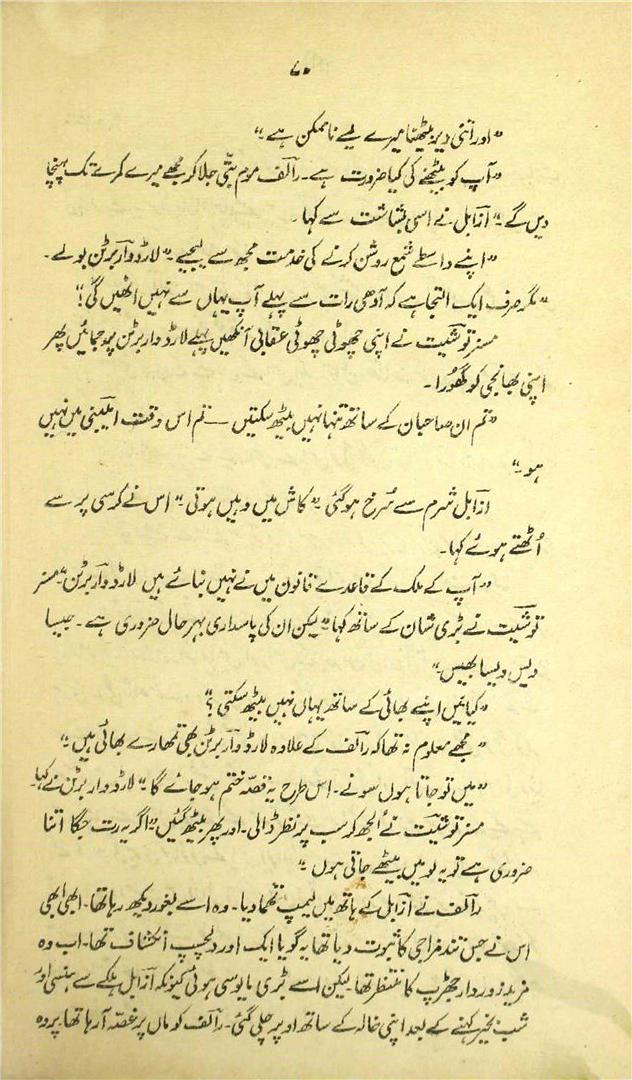 ۷۰
”اور اتنی دیر بیٹھنا میرے لیے ناممکن ہے“
”آپ کو بیٹھنے کی کیا ضرورت ہے۔ رالف موم بتّی جلا کر مجھے میرے کمرے تک پہنچا
دیں گے“ ازابل نے اسی بشاشت سے کہا۔
”اپنے واسطے شمع روشن کرنے کی خدمت مجھ سے لیجیے“ لارڈ واربرٹن بولے۔
”مگر صرف ایک التجا ہے کہ آدھی رات سے پہلے آپ یہاں سے نہیں اٹھیں گی؟“
مسز توشیت نے اپنی چھوٹی چھوٹی عقابی آنکھیں پہلے لارڈ واربرٹن پر جمائیں پھر
اپنی بھانجی کو گھورا۔
”تم ان صاحبان کے ساتھ تنہا نہیں بیٹھ سکتیں — تم اس وقت ایلبنی میں نہیں
ہو۔“
ازابل شرم سے سُرخ ہو گئی۔ ”کاش میں وہیں ہوتی“ اس نے کرسی پر سے
اُٹھتے ہوئے کہا۔
”آپ کے ملک کے قاعدے قانون میں نے نہیں بنائے ہیں لارڈ واربرٹن“ مسز
توشیت نے بڑی شان کے ساتھ کہا ”لیکن ان کی پاسداری بہرحال ضروری ہے۔ جیسا
دیس ویسا بھیس“
”کیا میں اپنے بھائی کے ساتھ یہاں نہیں بیٹھ سکتی؟“
”مجھے معلوم نہ تھا کہ رالف کے علاوہ لارڈ واربرٹن بھی تمھارے بھائی ہیں“
”میں تو جاتا ہوں سونے۔ اس طرح یہ قصّہ ختم ہو جائے گا“ لارڈ واربرٹن نے کہا۔
مسز توشیت نے اُلجھ کر سب پر نظر ڈالی۔ اور پھر بیٹھ گئیں ”اگر یہ رت جگا اتنا
ضروری ہے تو یہ لو میں بیٹھے جاتی ہوں“
رالف نے ازابل کے ہاتھ میں لیمپ تھما دیا۔ وہ اسے بغور دیکھ رہا تھا۔ ابھی ابھی
اس نے جس تند مزاجی کا ثبوت دیا تھا یہ گویا ایک اور دلچسپ انکشاف تھا۔ اب وہ
مزید زوردار جھڑپ کا منتظر تھا لیکن اسے بڑی مایوسی ہوئی کیونکہ ازابل ہلکے سے ہنسی اور
شب بخیر کہنے کے بعد اپنی خالہ کے ساتھ اوپر چلی گئی۔ رالف کو ماں پر غصّہ آ رہا تھا پر وہ